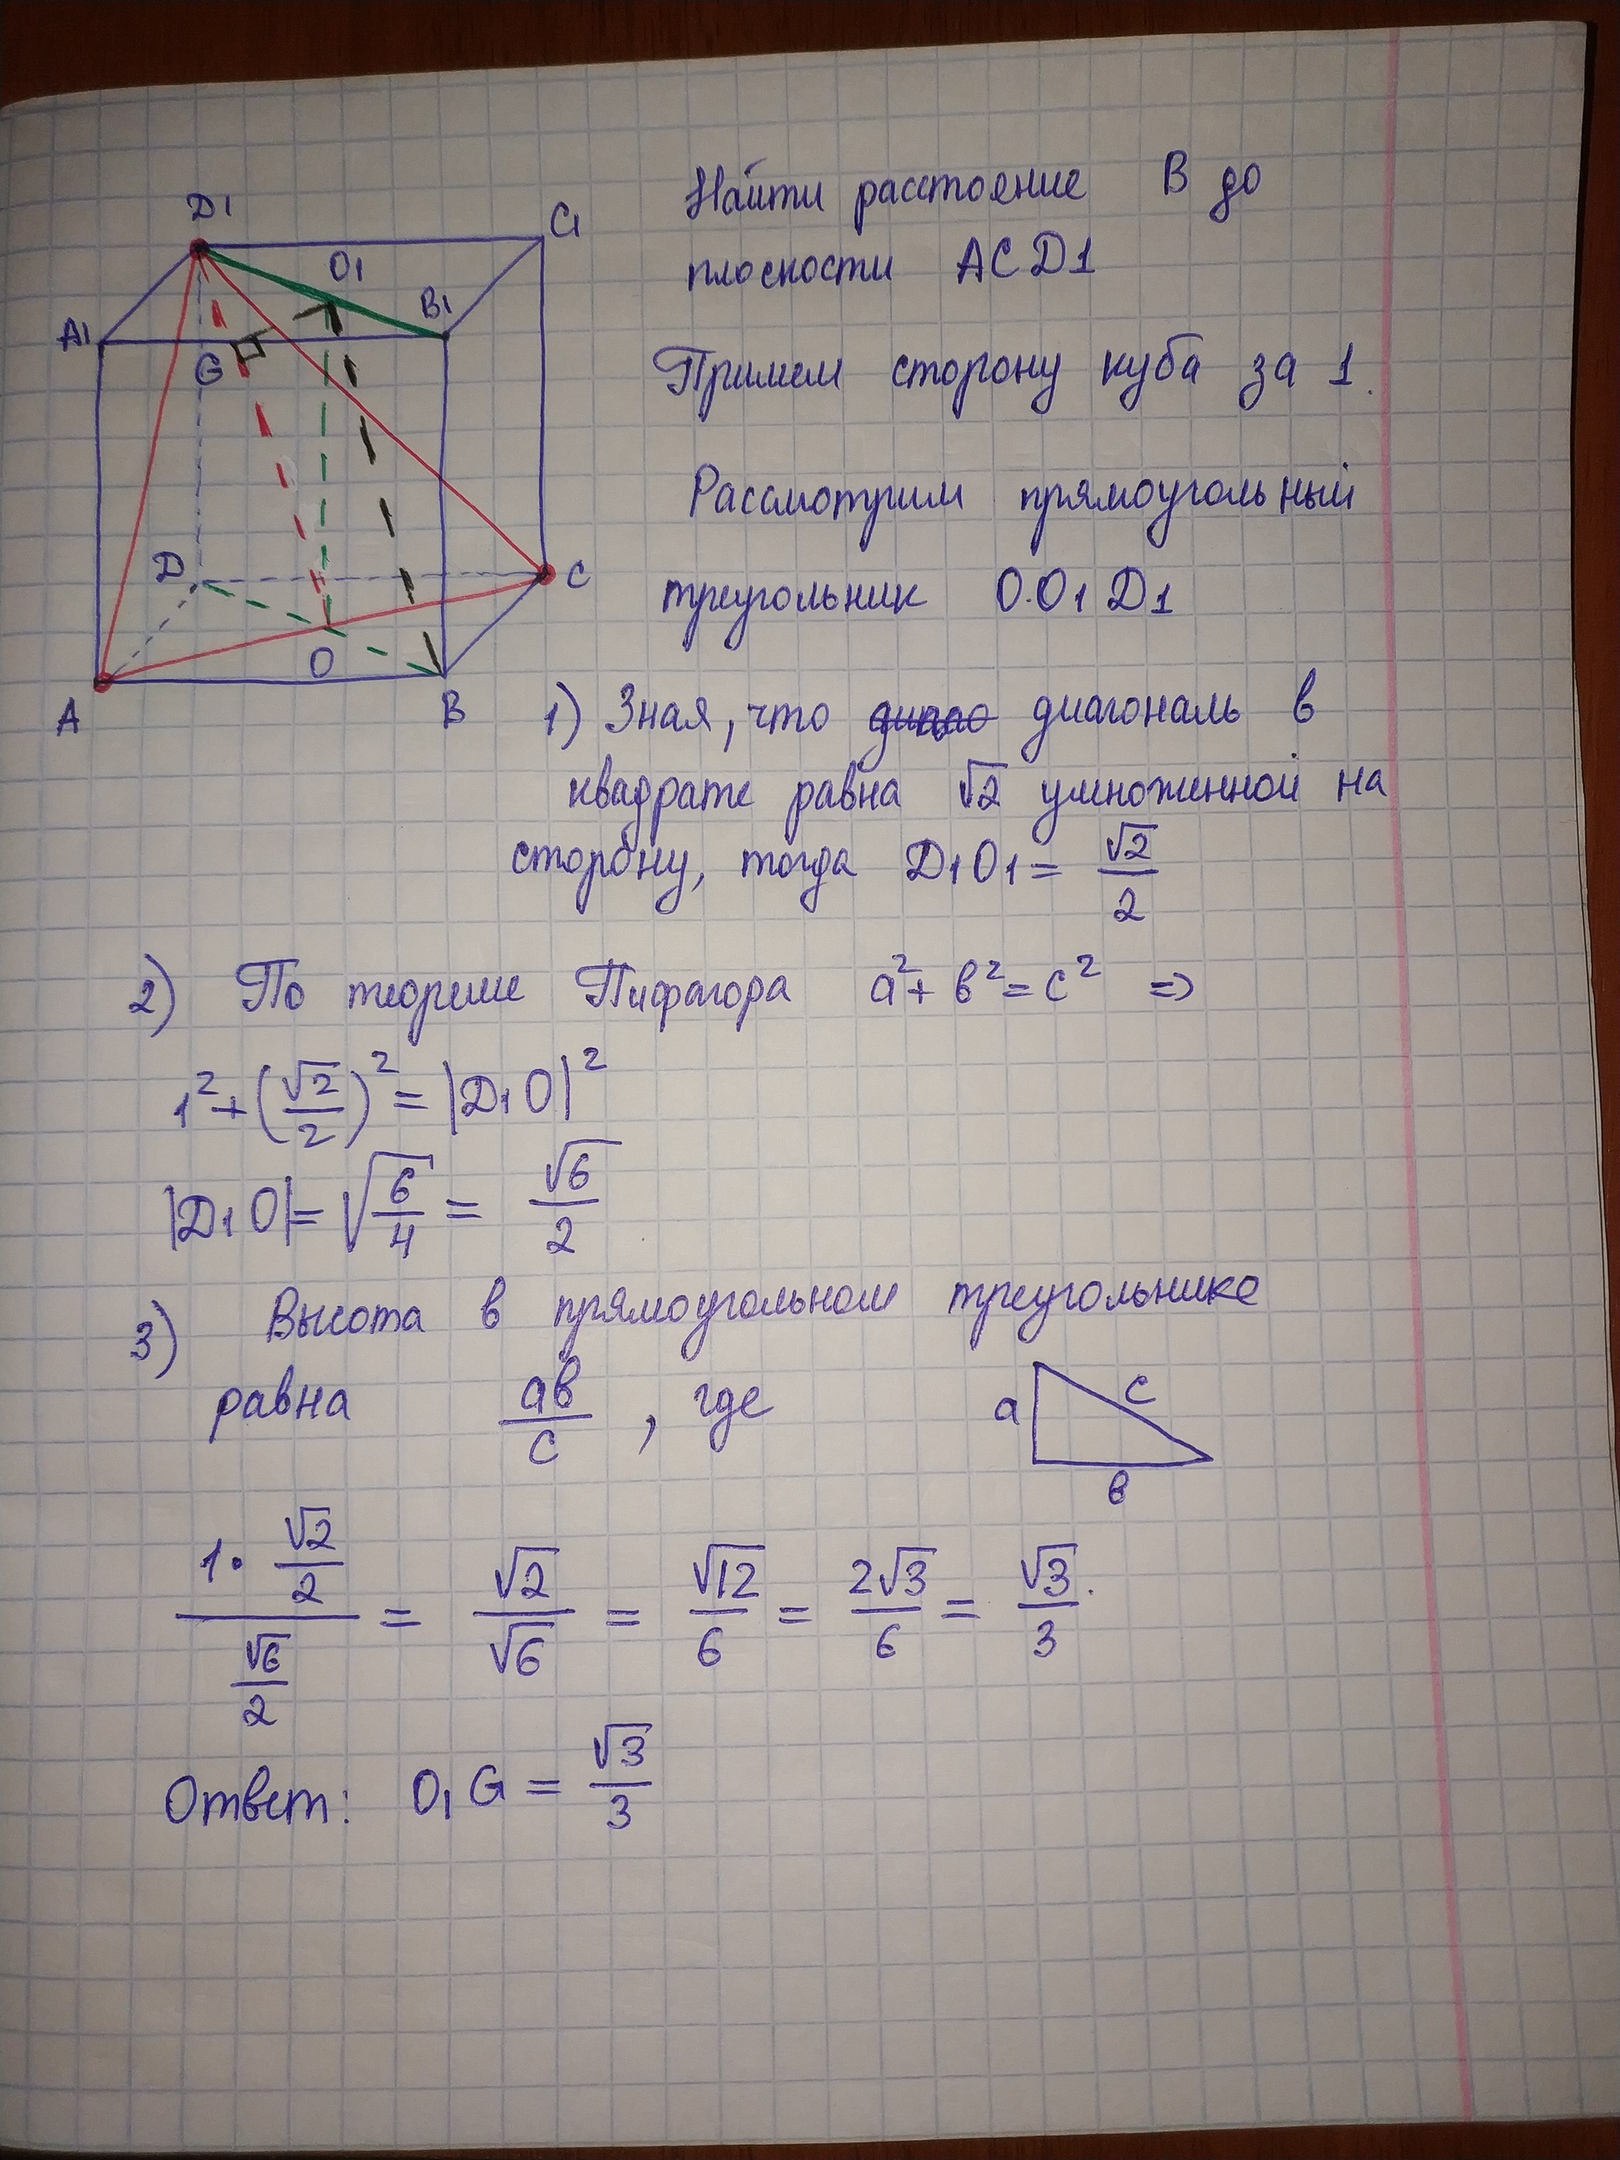 D1
C1
O1
B1
A1
G
D
C
O
A
B
Найти растояние B до
плоскости ACD1
Примем сторону куба за 1.
Рассмотрим прямоугольный
треугольник O.O1D1
1) Зная, что диагональ в
квадрате равна √2 умноженной на
сторону, тогда D1O1 = √2/2
2) По теореме Пифагора a² + b² = c² =>
1² + (√2/2)² = |D1O|²
|D1O| = √(6/4) = √6/2
3) Высота в прямоугольном треугольнике
равна ab/c, где
a
c
b
(1 · √2/2)/(√6/2) = √2/√6 = √12/6 = 2√3/6 = √3/3.
Ответ: O1G = √3/3